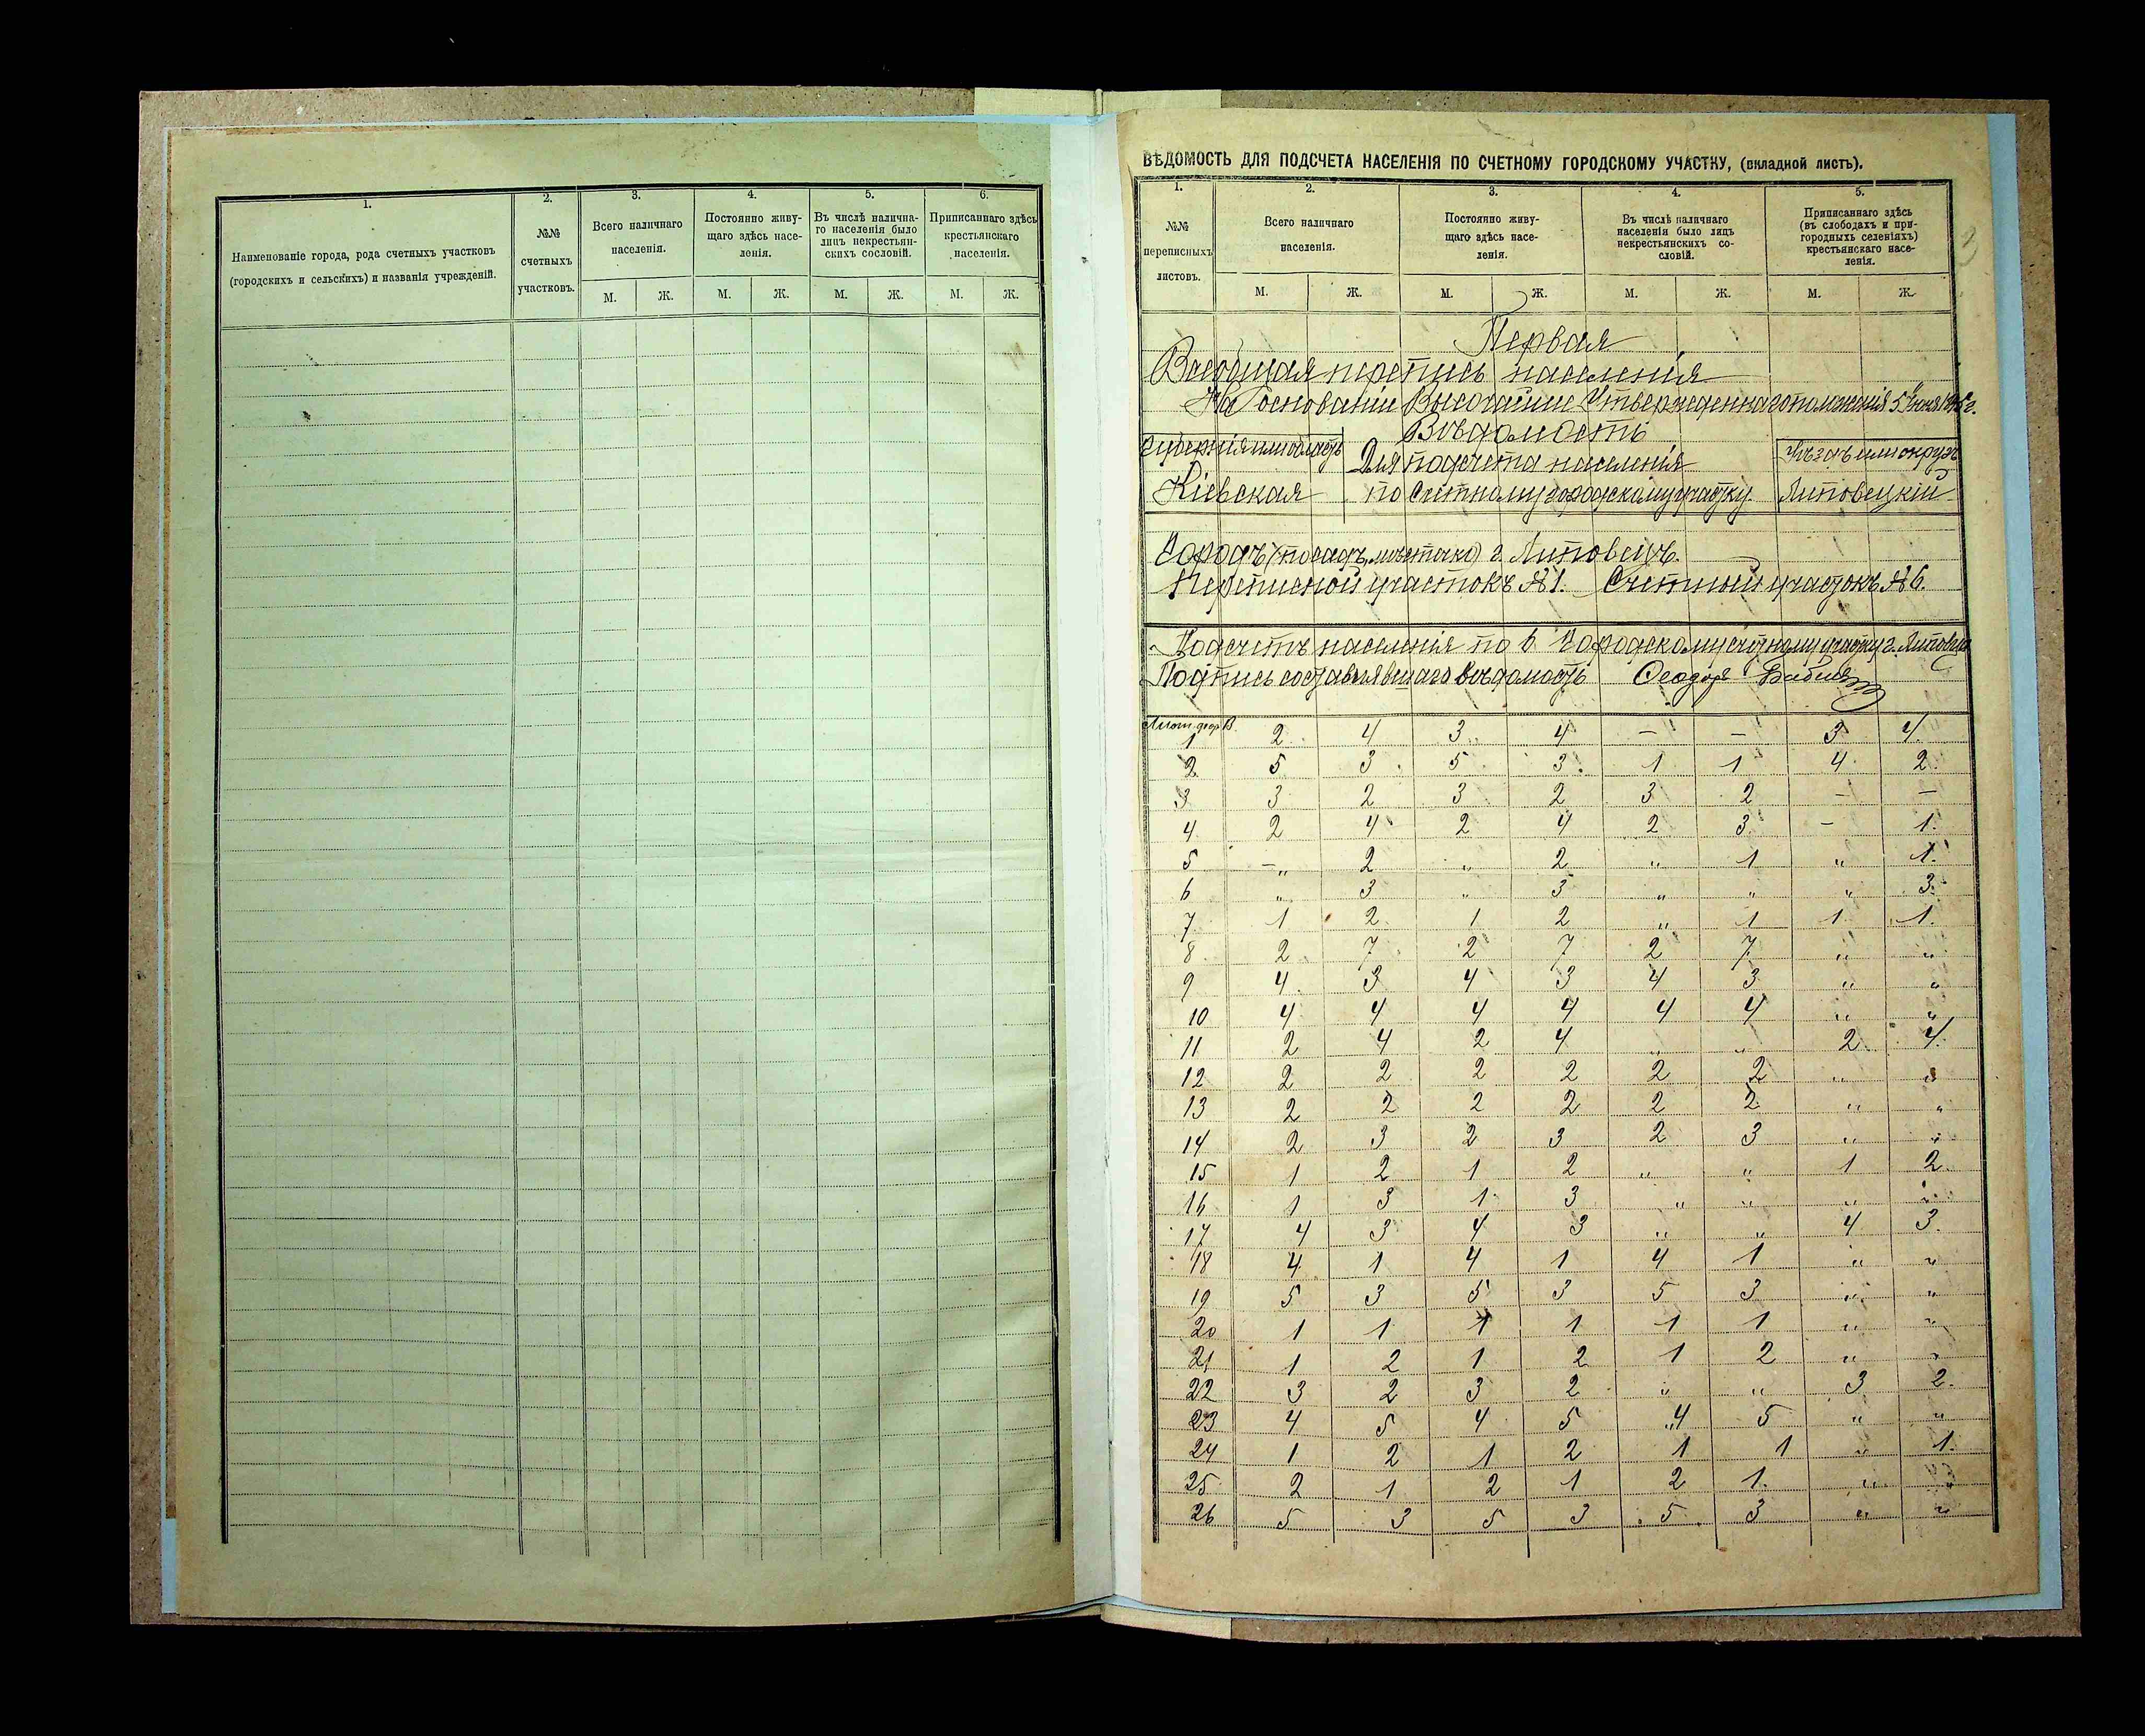 1.
2.
3.
4.
5.
6.
Наименованіе города, рода счетныхъ участковъ
(городскихъ и сельскихъ) и названія учрежденій.
№№
счетныхъ
участковъ.
Всего наличнаго
населенія.
Постоянно живу-
щаго здѣсь насе-
ленія.
Въ числѣ налична-
го населенія было
лицъ некрестьян-
скихъ сословій.
Приписаннаго здѣсь
крестьянскаго
населенія.
М. Ж. М. Ж. М. Ж. М. Ж.
ВѢДОМОСТЬ ДЛЯ ПОДСЧЕТА НАСЕЛЕНІЯ ПО СЧЕТНОМУ ГОРОДСКОМУ УЧАСТКУ, (вкладной листъ).
1.
2.
3.
4.
5.
№№
переписныхъ
листовъ.
Всего наличнаго
населенія.
Постоянно живу-
щаго здѣсь насе-
ленія.
Въ числѣ наличнаго
населенія было лицъ
некрестьянскихъ со-
словій.
Приписаннаго здѣсь
(въ слободахъ и при-
городныхъ селеніяхъ)
крестьянскаго насе-
ленія.
М. Ж. М. Ж. М. Ж. М. Ж.
Первая
Всеобщая перепись населенія
На основаніи Высочайше Утвержденнаго положенія 5 Іюня 1895 г.
Вѣдомость
Губернія или область Для подсчета населенія Уѣздъ или округъ
Кіевская по Счетному городскому участку Липовецкій
Городъ (посадъ, мѣстечко) г. Липовецъ.
Переписной участокъ № 1. Счетный участокъ № 6.
Подсчетъ населенія по 6 Городскому счетному участку г. Липовца
Подпись составлявшаго вѣдомость Ѳеодоръ
Лист. форм. В.
1 2 4 3 4 — — 3 4.
2 5 3 5 3 1 1 4 2.
3 3 2 3 2 3 2 — —
4 2 4 2 4 2 3 — 1.
5 — „ 2 „ 2 „ 1 „ 1.
6 „ 3 „ 3 „ „ „ 3.
7 1 2 1 2 „ 1 1 1.
8 2 7 2 7 2 7 „ „
9 4 3 4 3 4 3 „ „
10 4 4 4 4 4 4 „ „
11 2 4 2 4 „ „ 2 4.
12 2 2 2 2 2 2 „ „
13 2 2 2 2 2 2 „ „
14 2 3 2 3 2 3 „ „
15 1 2 1 2 „ „ 1 2.
16 1 3 1 3 „ „ „ „
17 4 3 4 3 „ „ 4 3.
18 4 1 4 1 4 1 „ „
19 5 3 5 3 5 3 „ „
20 1 1 1 1 1 1 „ „
21 1 2 1 2 1 2 „ „
22 3 2 3 2 „ „ 3 2.
23 4 5 4 5 „4 5 „ „
24 1 2 1 2 1 1 „ 1.
25 2 1 2 1 2 1. „ „
26 5 3 5 3 5 3 „ „